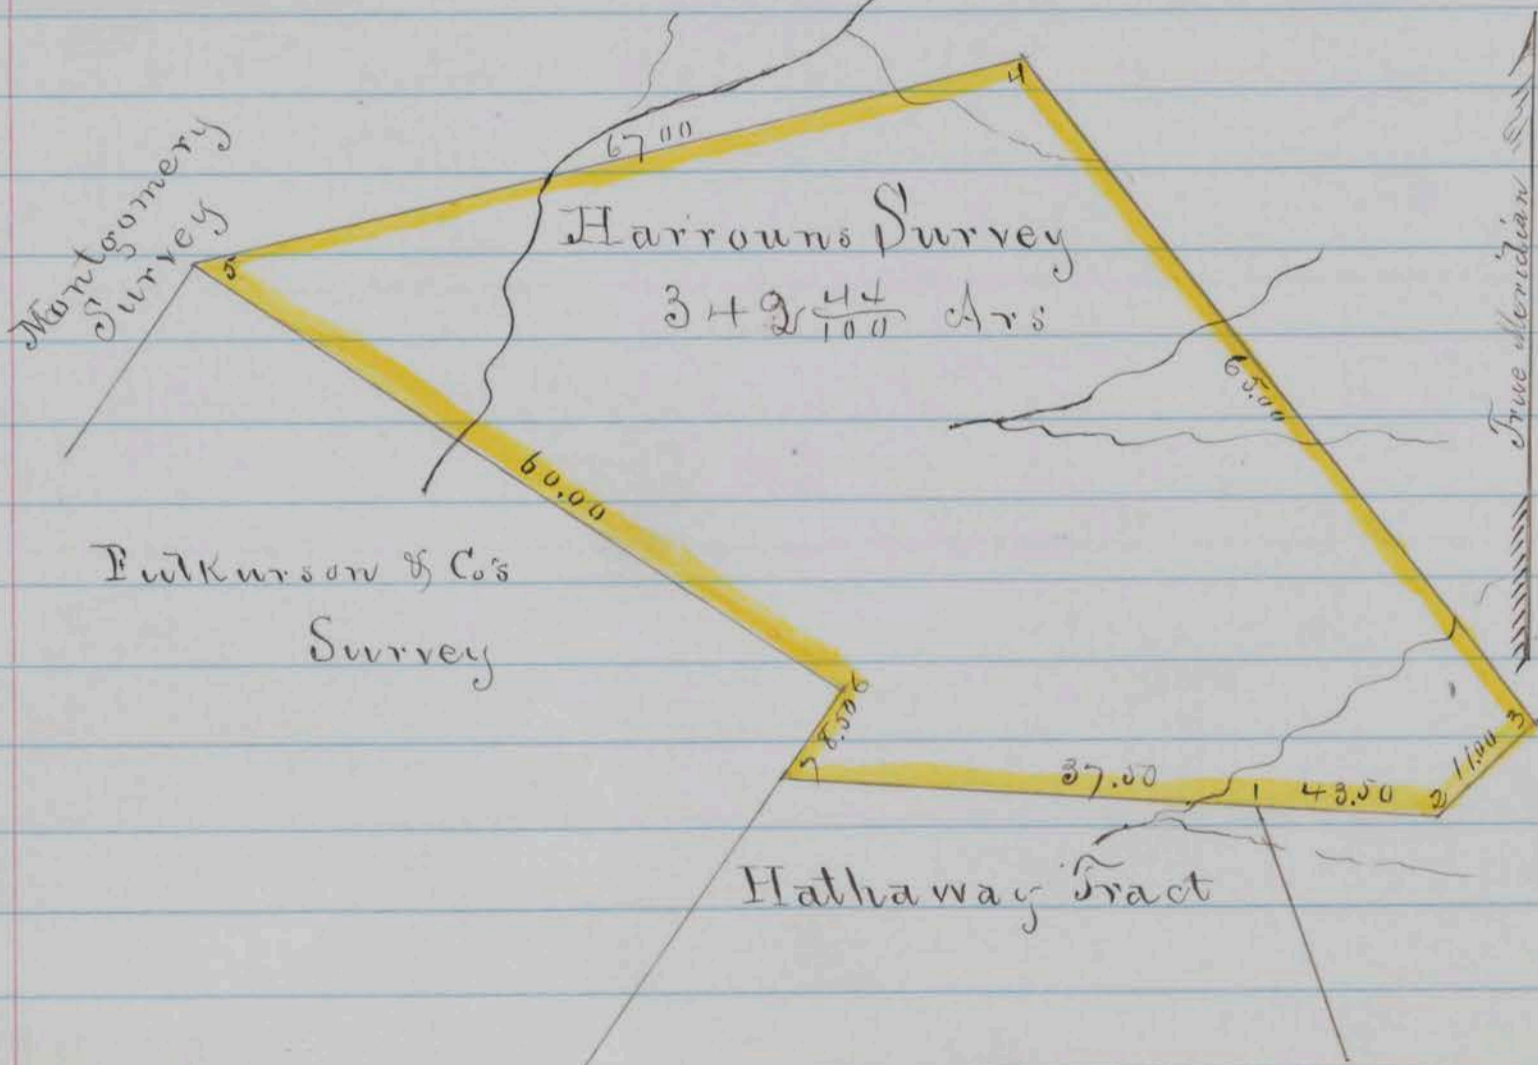 4
67 00
Montgomery
Survey
5
Harrouns Survey
342 44/100 Ars
True Meridian
65.00
60.00
Fulkurson & Co's
Survey
6
8.50
7
37.50
1
43.50
2
11.00
3
Hathaway Tract